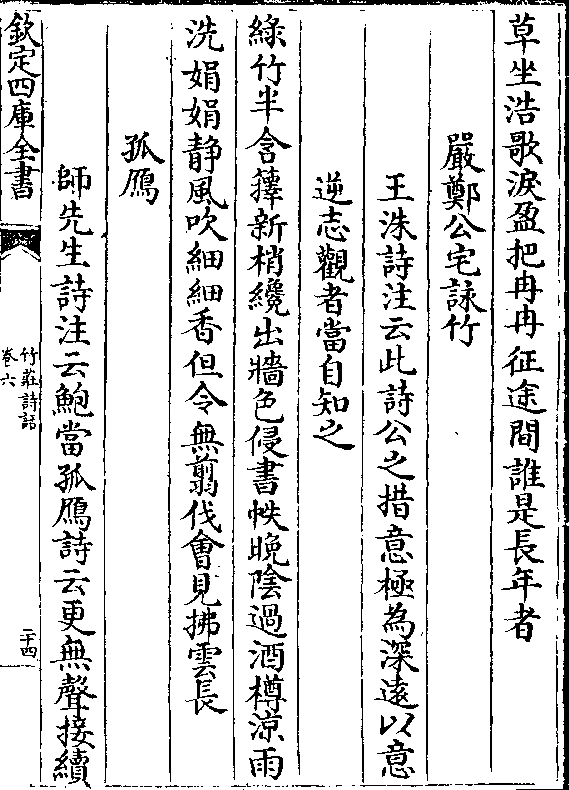 草坐浩歌淚盈把冉冉征途間誰是長年者
嚴鄭公宅詠竹
王洙詩注云此詩公之措意極為深遠以意
逆志觀者當自知之
綠竹半含籜新梢纔出牆色侵書帙晚陰過酒樽涼雨
洗娟娟靜風吹細細香但令無翦伐會見拂雲長
孤鴈
師先生詩注云鮑當孤鴈詩云更無聲接續
欽定四庫全書
竹莊詩話
卷六
二十四